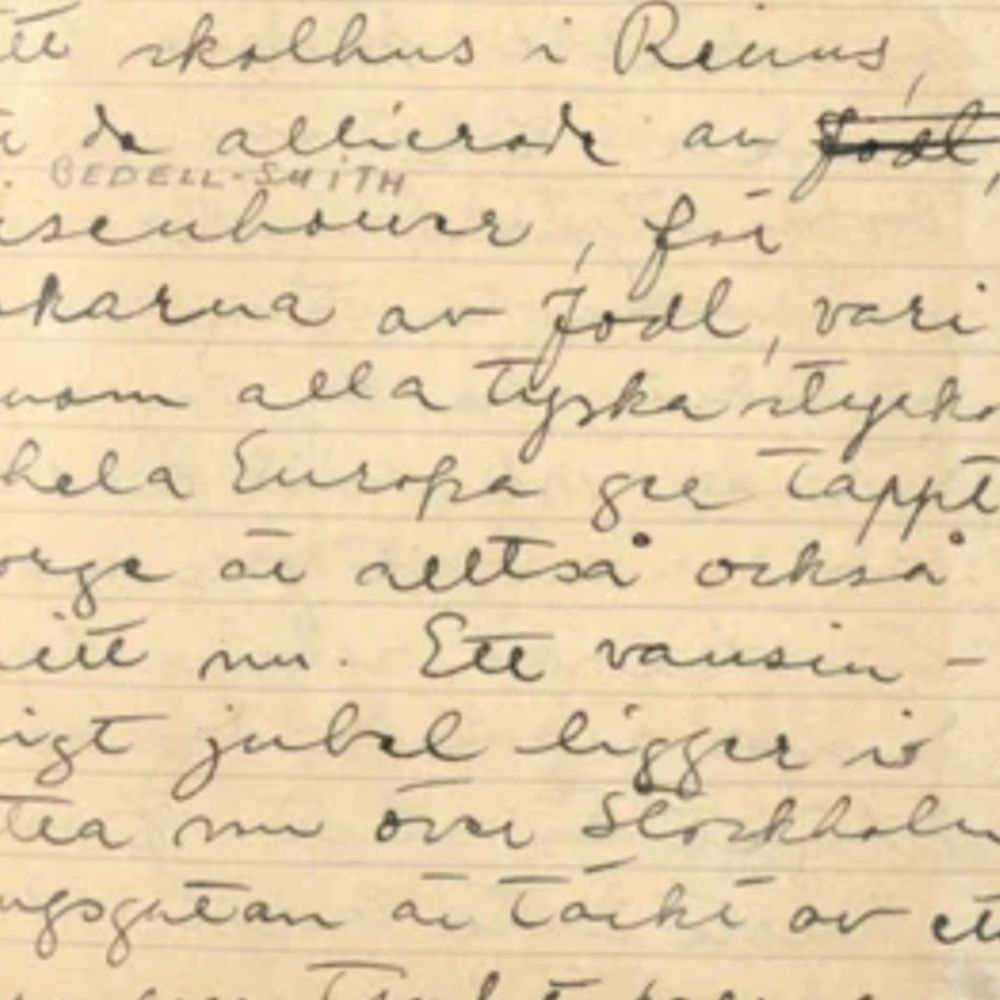 ett skolhus i Reims,
de allierade av Jodl,
BEDELL-SMITH
isenhower, för
skarna av Jodl, vari
nom alla tyska styrko
hela Europa ger tappt
orge är alltså också
itt nu. Ett vansin-
igt jubel ligger i
tta nu över Stockholm
ngsgatan är täckt av ett